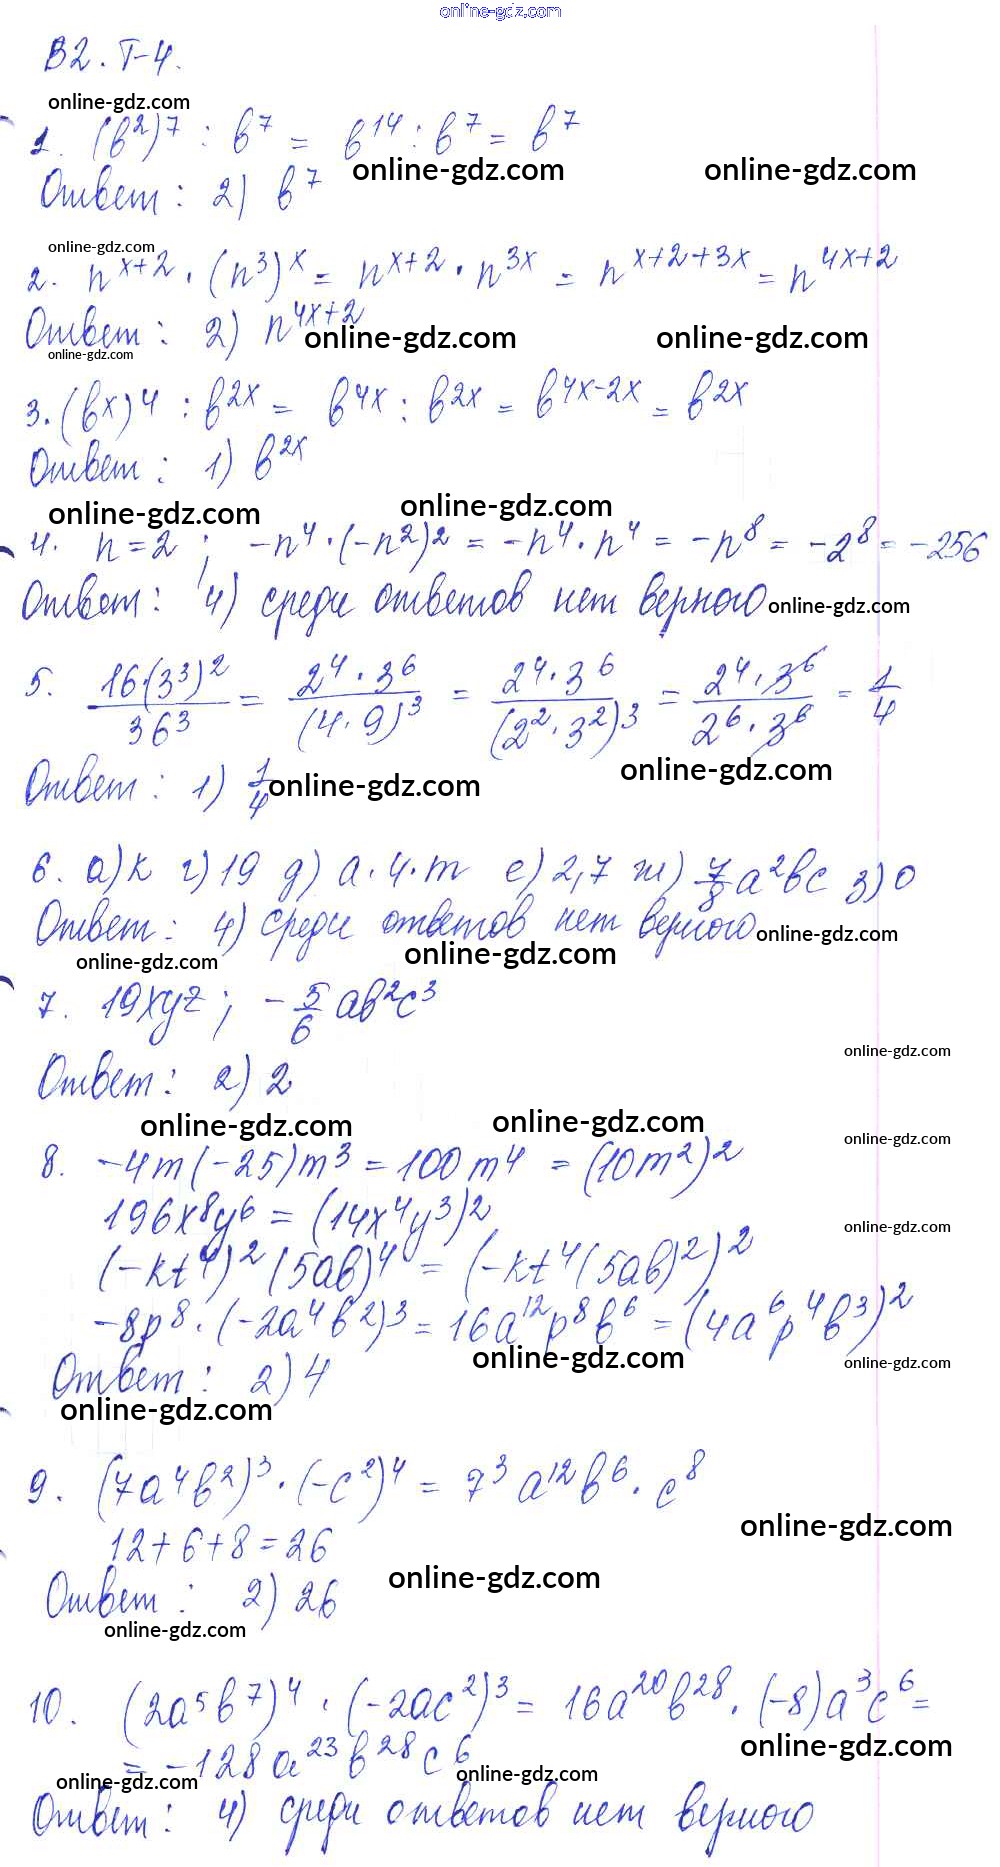 online-gdz.com
В2. Т-4.
online-gdz.com
1. (b²)⁷ : b⁷ = b¹⁴ : b⁷ = b⁷
online-gdz.com online-gdz.com
Ответ: 2) b⁷
online-gdz.com
2. n^(x+2) · (n³)^x = n^(x+2) · n^(3x) = n^(x+2+3x) = n^(4x+2)
Ответ: 2) n^(4x+2)
online-gdz.com online-gdz.com
online-gdz.com
3. (b^x)⁴ : b^(2x) = b^(4x) : b^(2x) = b^(4x-2x) = b^(2x)
Ответ: 1) b^(2x)
online-gdz.com online-gdz.com
4. n=2; -n⁴·(-n²)² = -n⁴·n⁴ = -n⁸ = -2⁸ = -256
Ответ: 4) среди ответов нет верного
online-gdz.com
5. 16·(3³)²/36³ = 2⁴·3⁶/(4·9)³ = 2⁴·3⁶/(2²·3²)³ = 2⁴·3⁶/2⁶·3⁶ = 1/4
Ответ: 1) 1/4
online-gdz.com online-gdz.com
6. а) k г) 19 д) a·4·m е) 2,7 ж) 7/8 a²bc з) 0
Ответ: 4) среди ответов нет верного
online-gdz.com
online-gdz.com online-gdz.com
7. 19xyz; -5/6 ab²c³
online-gdz.com
Ответ: 2) 2
online-gdz.com online-gdz.com
online-gdz.com
8. -4m(-25)m³ = 100m⁴ = (10m²)²
196x⁸y⁶ = (14x⁴y³)²
online-gdz.com
(-kt⁴)²(5ab)⁴ = (-kt⁴(5ab)²)²
-8p⁸·(-2a⁴b²)³ = 16a¹²p⁸b⁶ = (4a⁶p⁴b³)²
online-gdz.com online-gdz.com
Ответ: 2) 4
online-gdz.com
9. (7a⁴b²)³·(-c²)⁴ = 7³a¹²b⁶·c⁸
online-gdz.com
12+6+8=26
online-gdz.com
Ответ: 2) 26
online-gdz.com
10. (2a⁵b⁷)⁴·(-2ac²)³ = 16a²⁰b²⁸·(-8)a³c⁶ =
online-gdz.com
= -128a²³b²⁸c⁶
online-gdz.com online-gdz.com
Ответ: 4) среди ответов нет верного